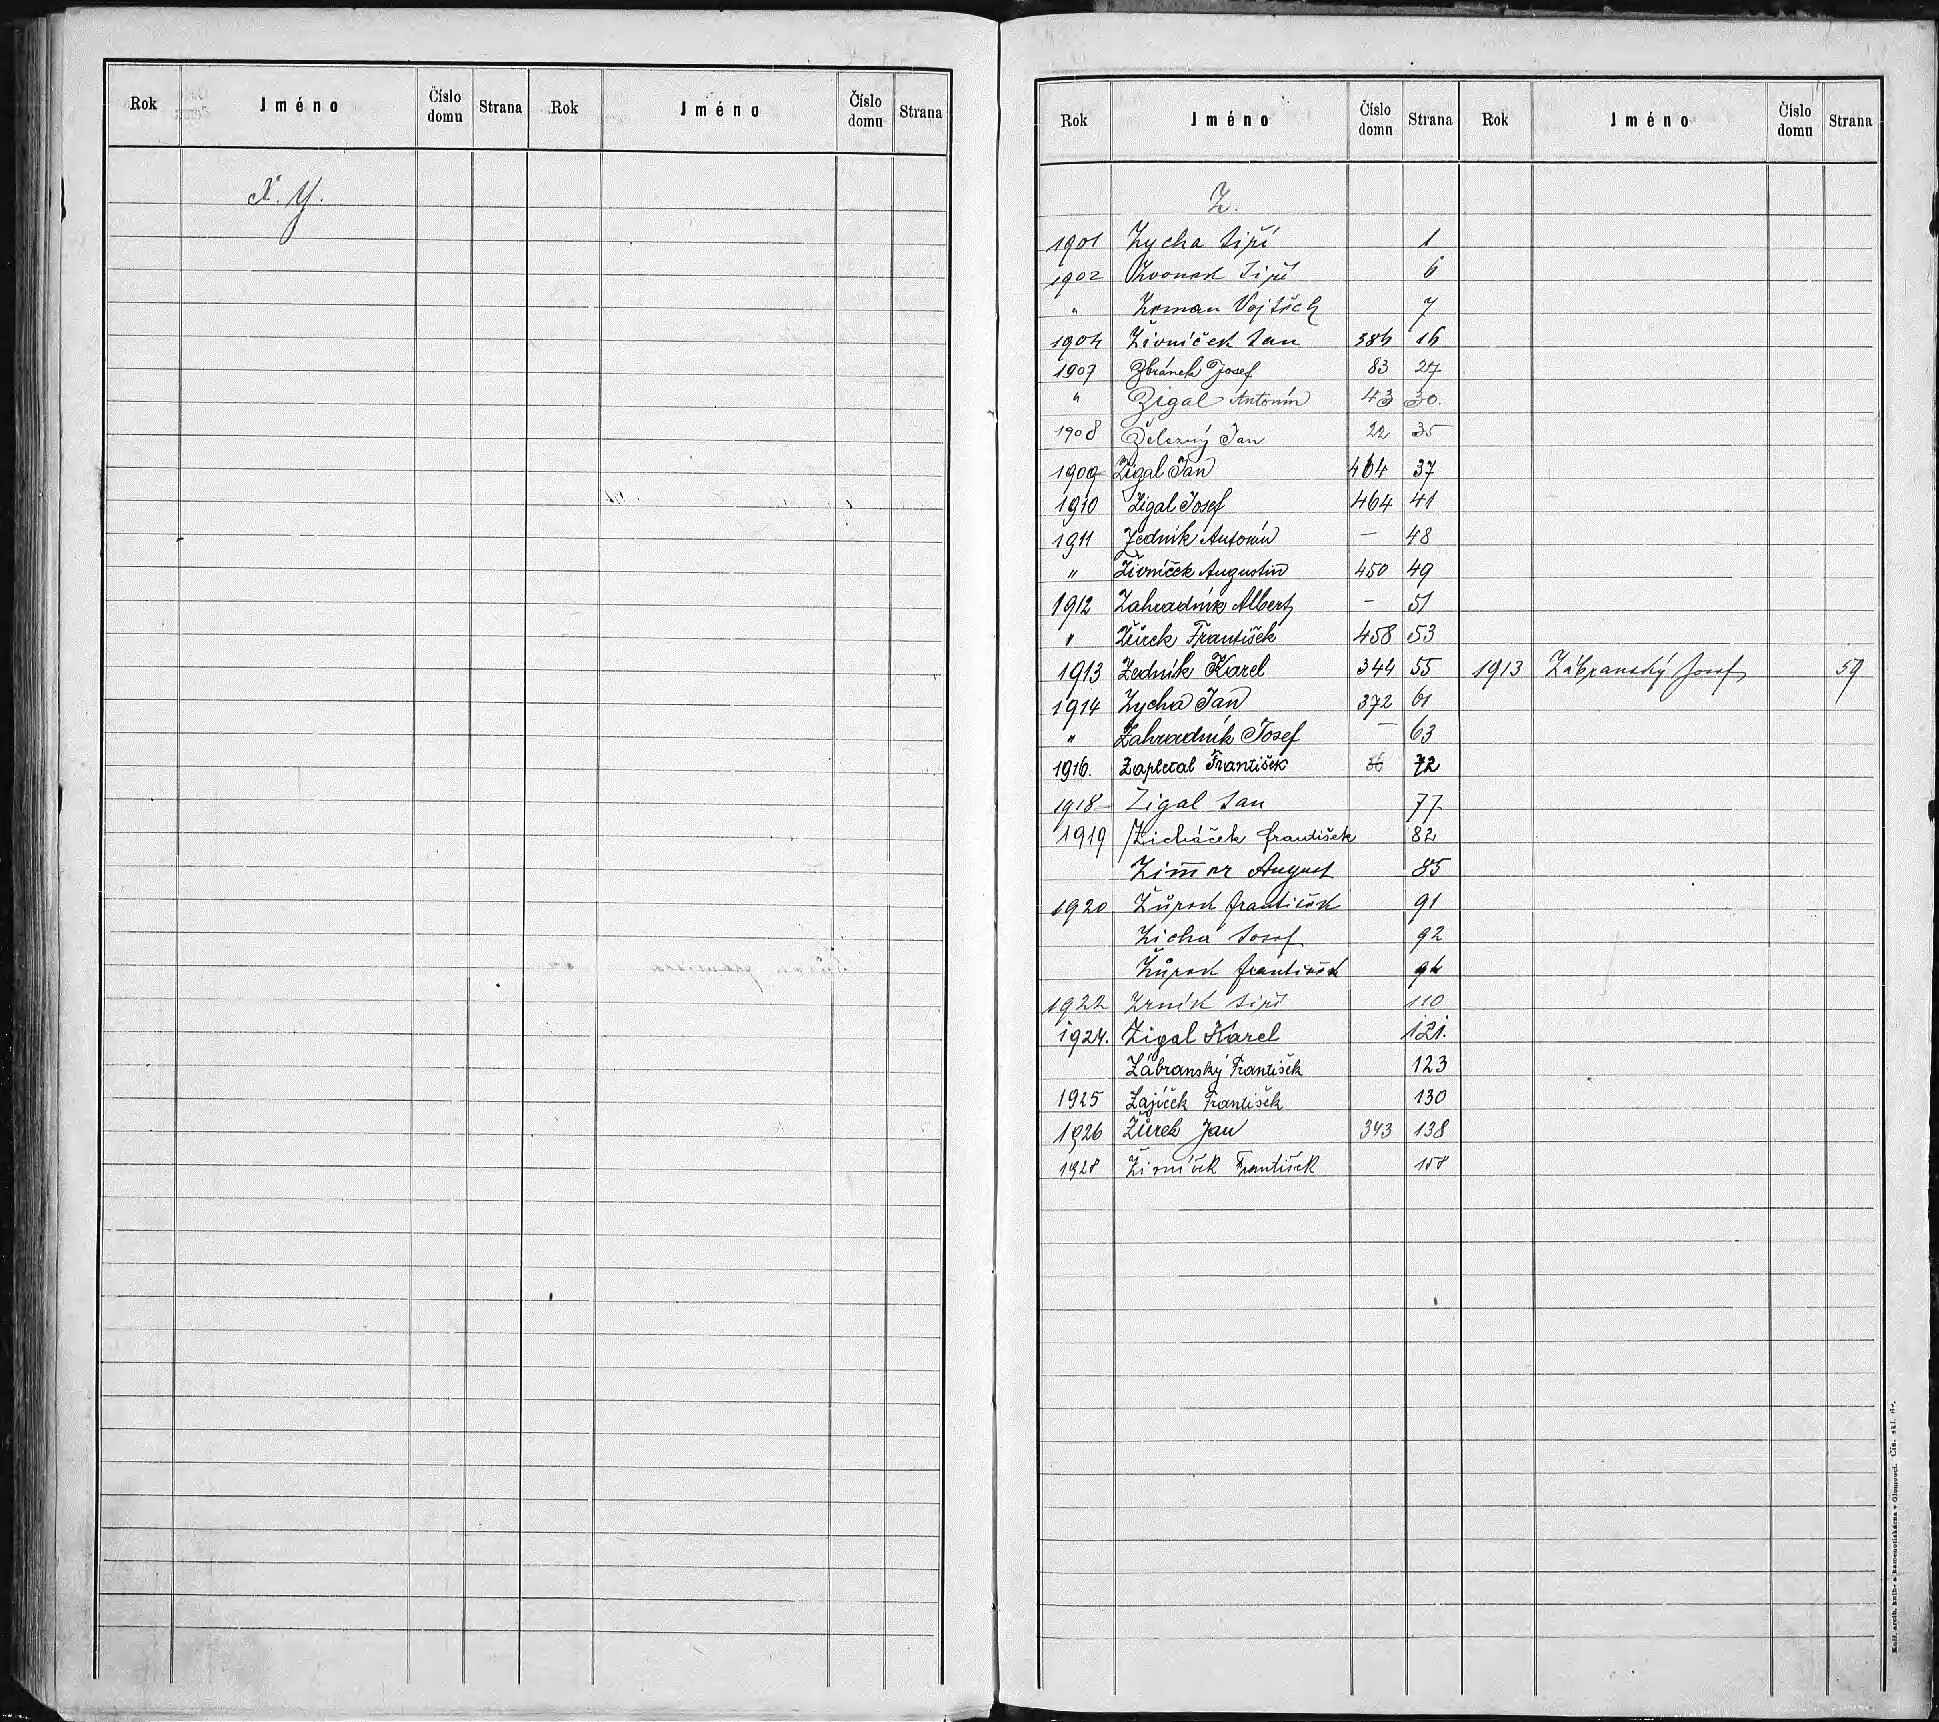 Rok Jméno Číslo domu Strana Rok Jméno Číslo domu Strana
X. Y.
Rok Jméno Číslo domu Strana Rok Jméno Číslo domu Strana
Z.
1901 Zycha Jiří 1
1902 Zvonek Jiří 6
" Zeman Vojtěch 7
1904 Živníček Jan 386 16
1907 Zbránek Josef 83 27
" Zigal Antonín 43 30.
1908 Železný Jan 22 35
1909 Zigal Jan 464 37
1910 Zigal Josef 464 41
1911 Zedník Antonín — 48
" Živníček Augustin 450 49
1912 Zahradník Albert — 51
" Žůrek František 458 53
1913 Zedník Karel 344 55 1913 Zábranský Josef 59
1914 Zycha Jan 372 61
" Zahradník Josef — 63
1916. Zapletal František 36 72
1918 Zigal Jan 77
1919 Zicháček František 82
Zim̅er August 85
1920 Žůrek František 91
Zicha Josef 92
Žůrek František 94
1922 Zrník Jiří 110
1924. Zigal Karel 121.
Zábranský František 123
1925 Zajíček František 130
1926 Žůrek Jan 343 138
1928 Živníček František 158